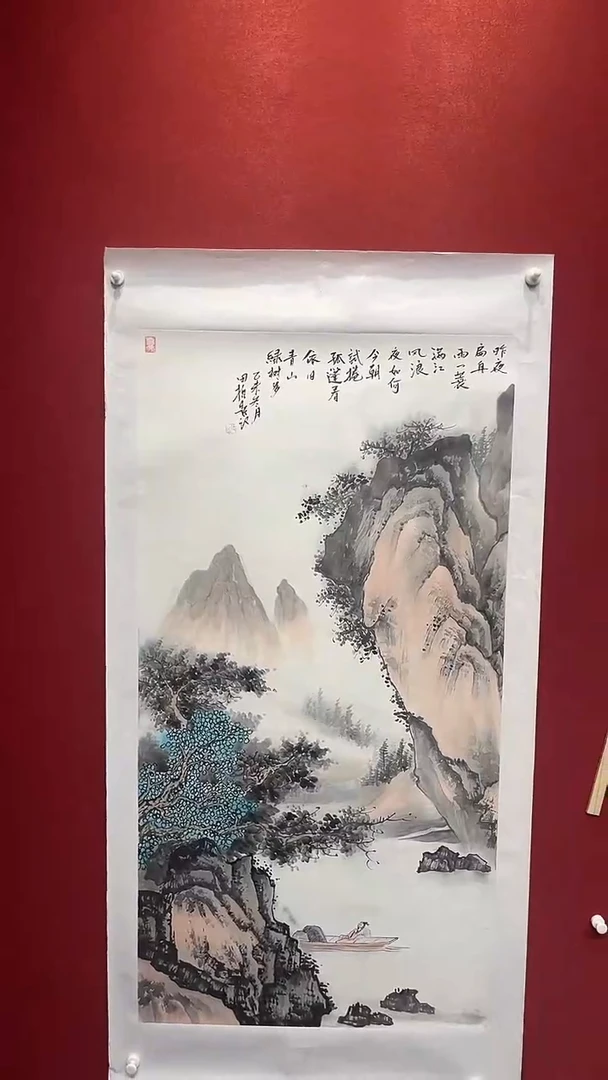 昨夜
扁舟
雨一蓑
满江
风浪
夜如何
今朝
試捲
孤蓬看
依旧
青山
綠樹多
乙未